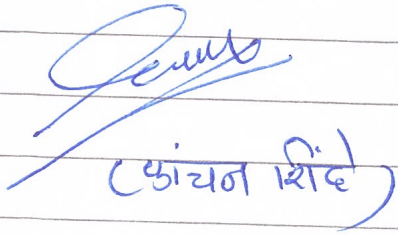 (कांचन शिंदे)